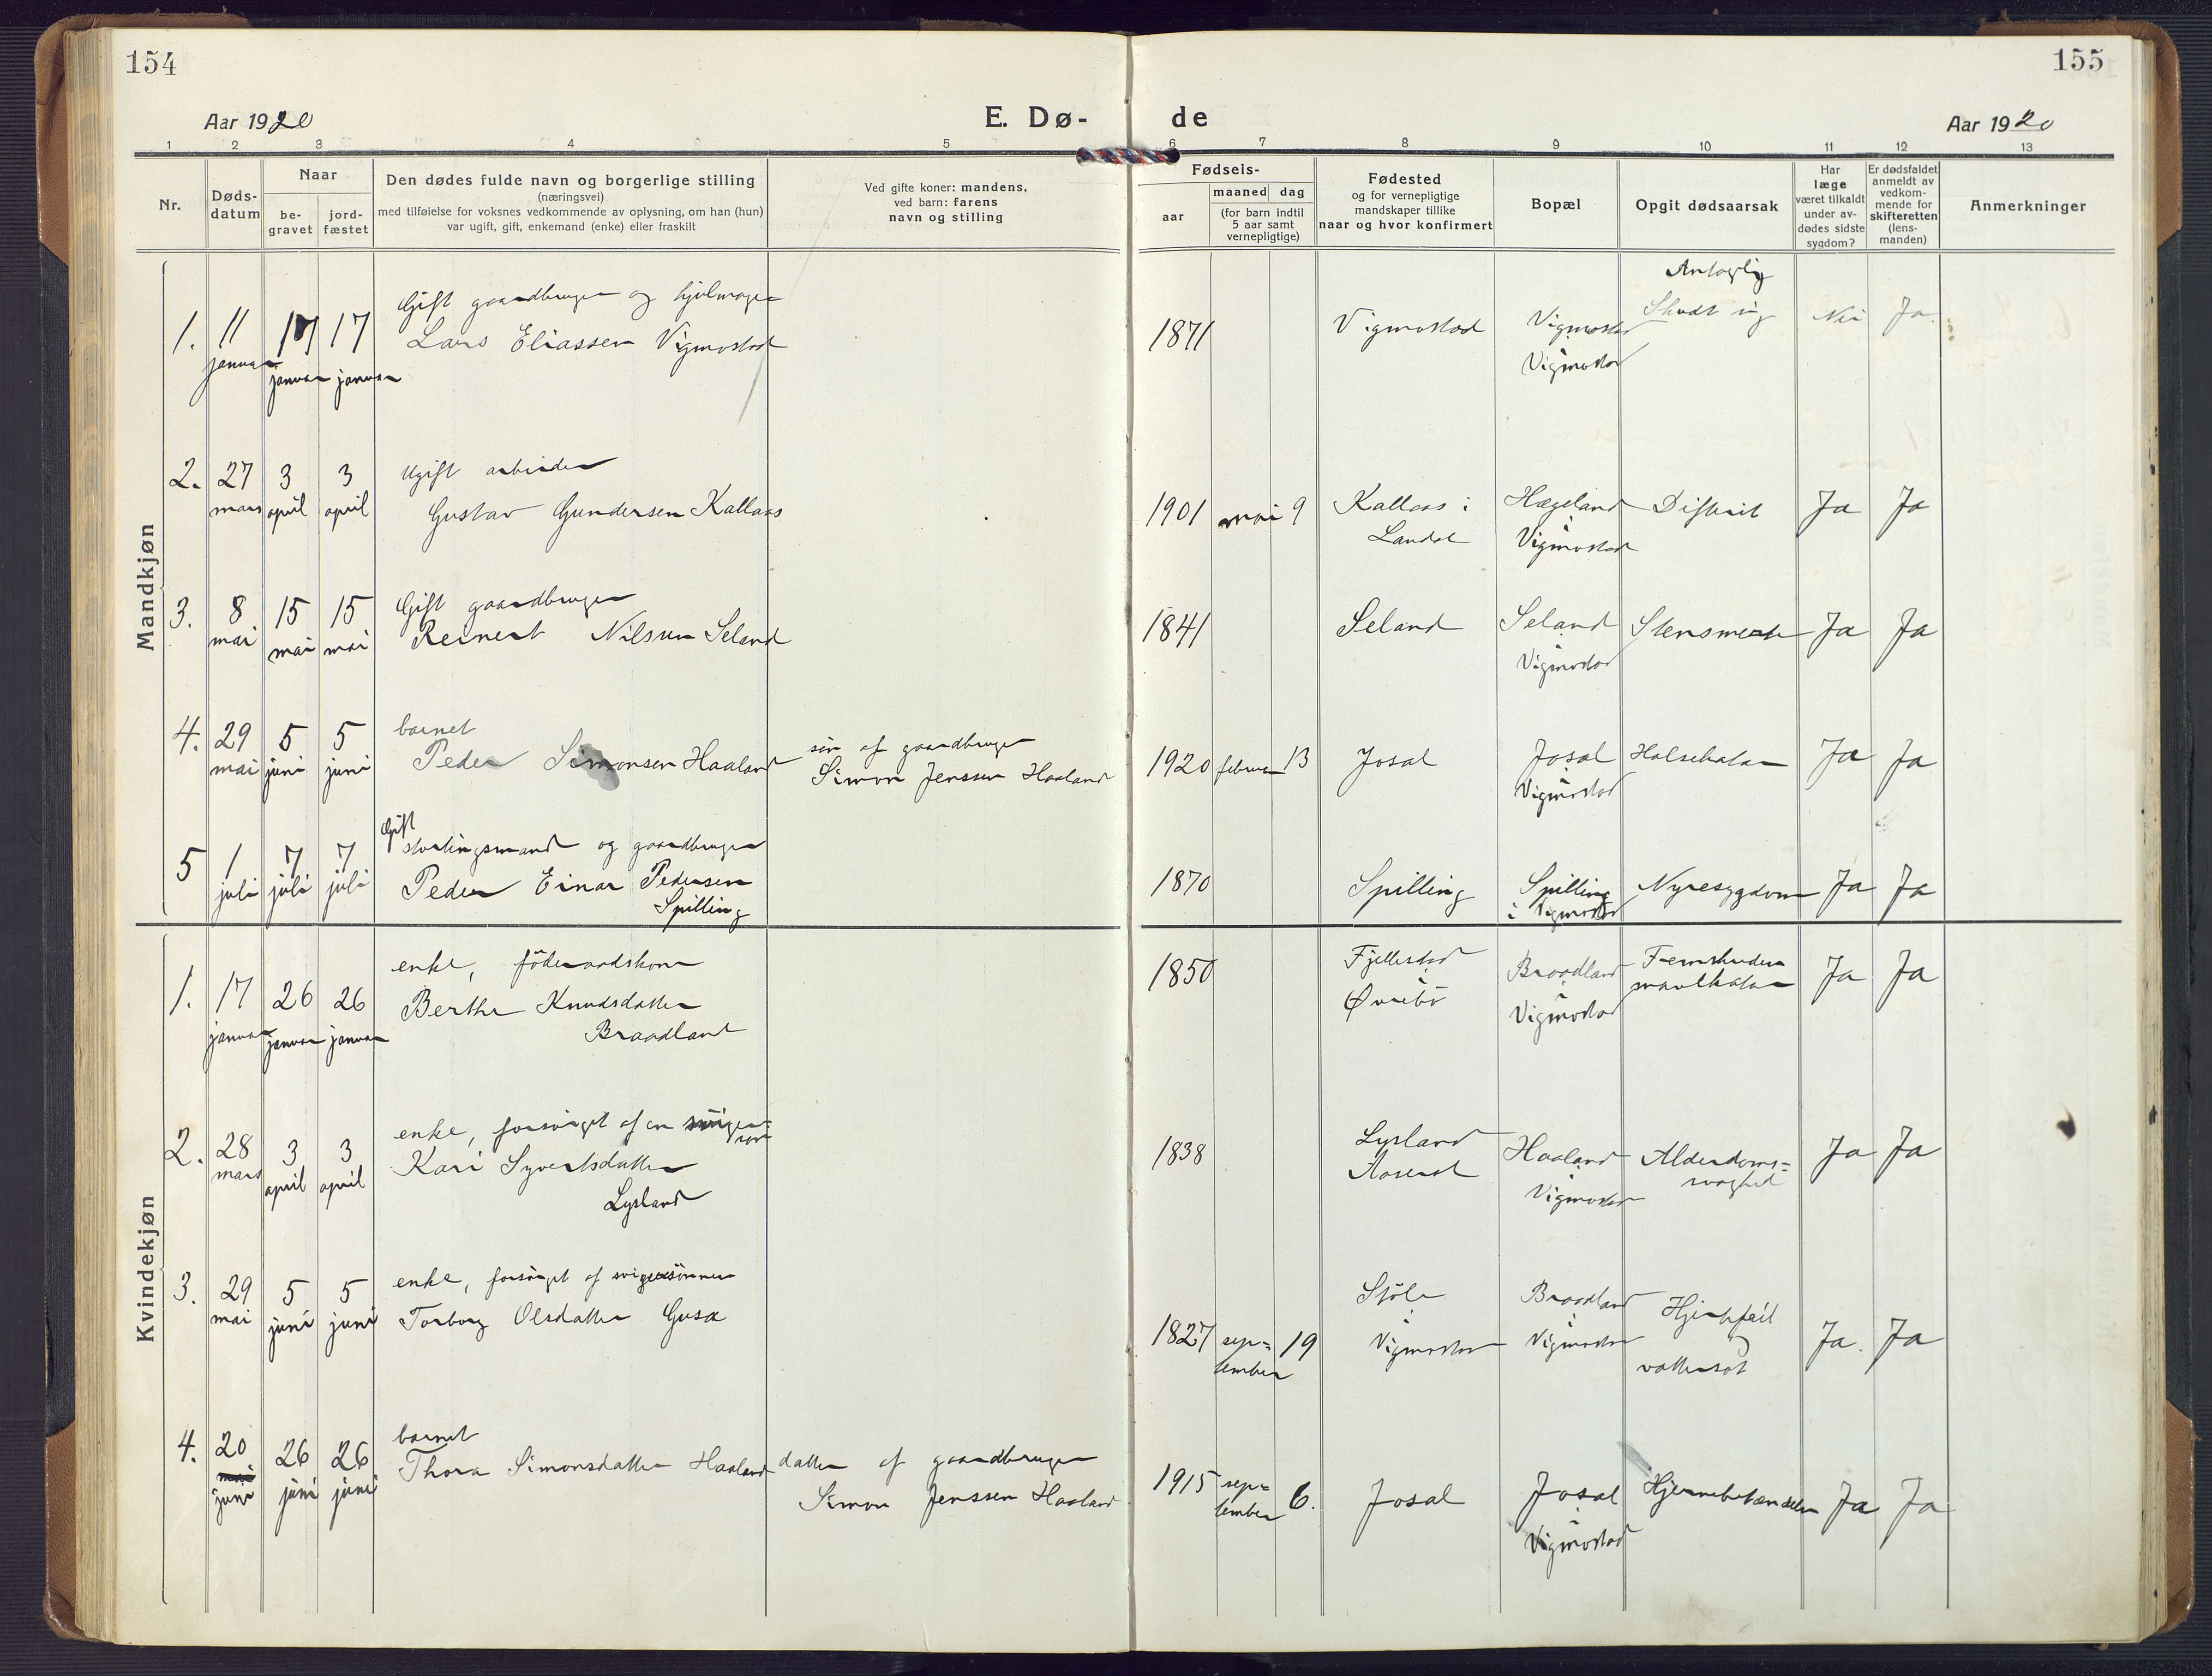 154
155
Aar 1920
E. Dø-
de
Aar 1920
1 2 3 4 5 6 7 8 9 10 11 12 13
Nr.
Døds-
datum
Naar
be-
gravet
jord-
fæstet
Den dødes fulde navn og borgerlige stilling
(næringsvei)
med tilføielse for voksnes vedkommende av oplysning, om han (hun)
var ugift, gift, enkemand (enke) eller fraskilt
Ved gifte koner: mandens,
ved barn: farens
navn og stilling
Fødsels-
aar
maaned dag
(for barn indtil
5 aar samt
vernepligtige)
Fødested
og for vernepligtige
mandskaper tillike
naar og hvor konfirmert
Bopæl
Opgit dødsaarsak
Har
læge
været tilkaldt
under av-
dødes sidste
sygdom?
Er dødsfaldet
anmeldt av
vedkom-
mende for
skifteretten
(lens-
manden)
Anmerkninger
Mandkjøn
1.
11
januar
17
januar
17
januar
Gift gaardbruger og hjulmager
Lars Eliassen Vigmostad
1871
Vigmostad
Vigmostad
i
Vigmostad
Antagelig
Skudt sig
Nei
Ja.
2.
27
mars
3
april
3
april
Ugift arbeider
Gustav Gundersen Kallaas
1901 mai 9
Kallaas i
Landal
Hægeland
i
Vigmostad
Difterit
Ja
Ja
3.
8
mai
15
mai
15
mai
Gift gaardbruger
Reinert Nilssen Seland
1841
Seland
Seland
i
Vigmostad
Stensmerte
Ja
Ja
4.
29
mai
5
juni
5
juni
barnet
Peder Simonsen Haaland
søn af gaardbruger
Simon Jenssen Haaland
1920 februar 13
Josal
Josal
i
Vigmostad
Halsekatar
Ja
Ja
5
1
juli
7
juli
7
juli
Gift
stortingsmand og gaardbruger
Peder Einar Pedersen
Spilling
1870
Spilling
Spilling
i Vigmostad
Nyresygdom
Ja
Ja
Kvindekjøn
1.
17
januar
26
januar
26
januar
enke, föderaadskone
Berthe Knudsdatter
Braadland
1850
Fjellestad
i
Øvrebö
Braadland
i
Vigmostad
Fremskreden
mavekatar
Ja
Ja
2.
28
mars
3
april
3
april
enke, forsörget af en sviger=
søn
Kari Syvertsdatter
Lysland
1838
Lysland
Aaseral
Haaland
i
Vigmostad
Alderdoms=
svaghed
Ja
Ja
3.
29
mai
5
juni
5
juni
enke, forsörget af svigersönnen
Torborg Olsdatter Guse
1827 sep=
tember 19
Stöle
i
Vigmostad
Braadland
i
Vigmostad
Hjertefeil
og
vattersot
Ja.
Ja
4.
20
mai
juni
26
juni
26
juni
barnet
Thora Simonsdatter Haaland
datter af gaardbruger
Simon Jenssen Haaland
1915 sep=
tember 6.
Josal
Josal
i
Vigmostad
Hjernebetændelse
Ja
Ja